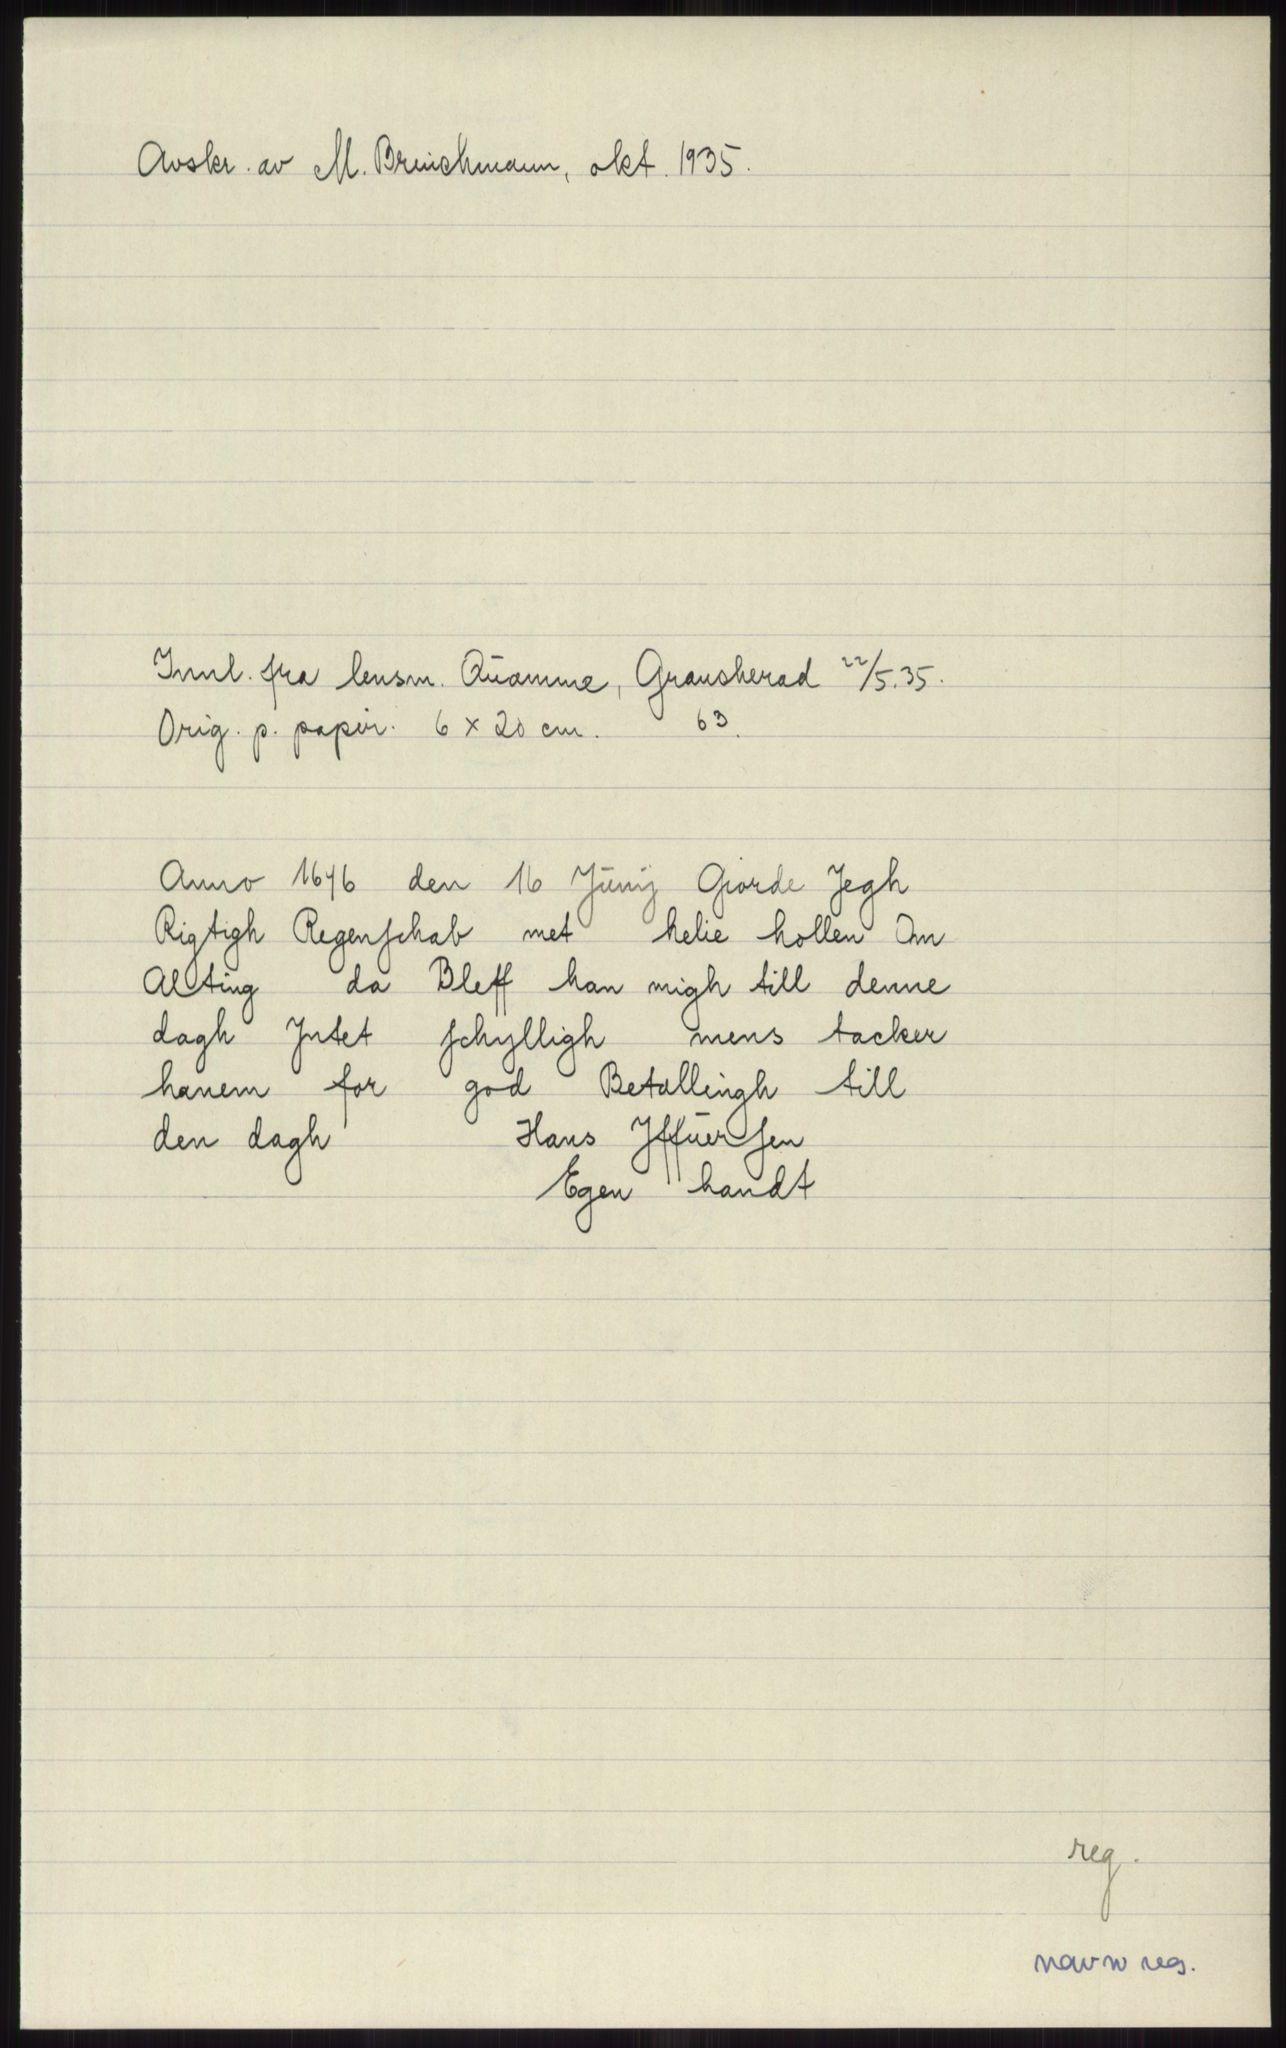 Avskr. av M. Brinchmann, okt. 1935.
Innl. fra lensm. Qŭamme, Gransherad 22/5.35.
Orig. p. papir. 6 x 20 cm. 63.
Anno 1646 den 16 Jŭnij Giorde Jegh
Rigtigh Regenschab met helie hollen Om
Alting da Bleff han migh till denne
dagh Jntet schylligh mens tacker
hanem for god Betallingh till
den dagh Hans Jffŭersen
Egen handt
reg.
navn reg.